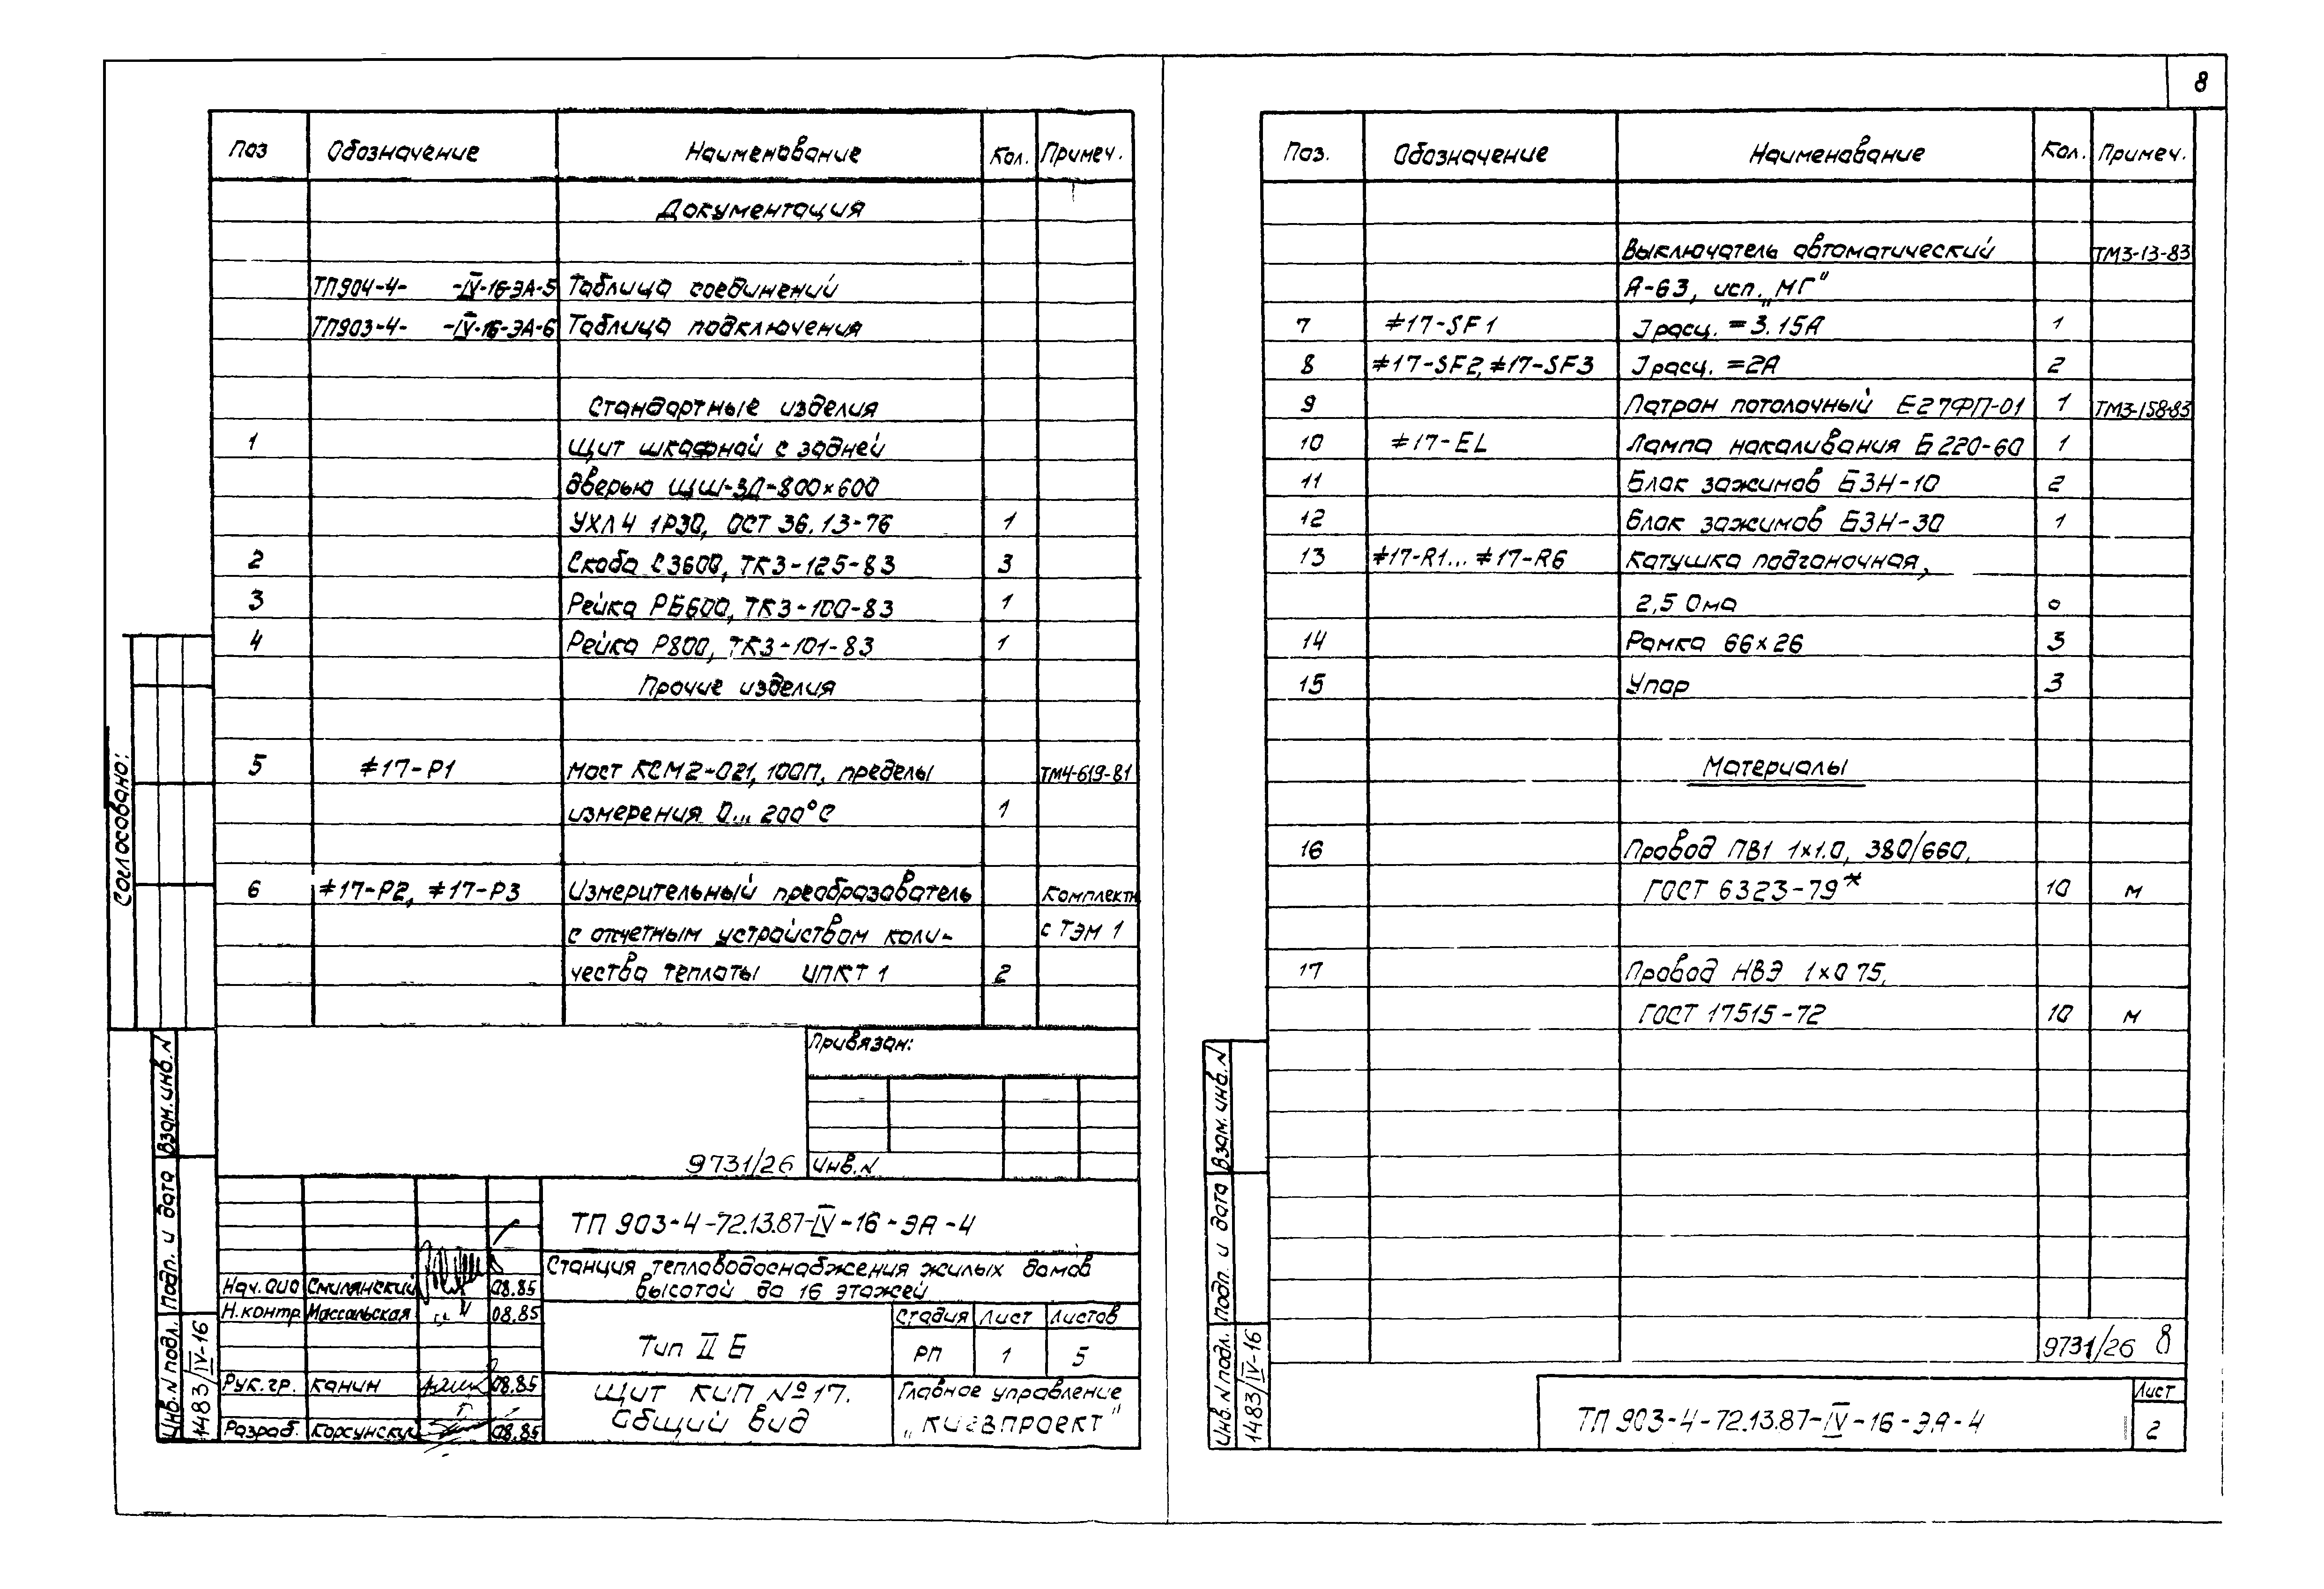 8
Поз Обозначение Наименование Кол. Примеч.
Документация
ТП904-4- -IV-16-ЭА-5 Таблица соединений
ТП903-4- -IV-16-ЭА-6 Таблица подключения
Стандартные изделия
1 Щит шкафной с задней
дверью ЩШ-ЗД-800×600
УХЛ4 1Р30, ОСТ 36.13-76 1
2 Скоба С3600, ТК3-125-83 3
3 Рейка РБ600, ТК3-100-83 1
4 Рейка Р800, ТК3-101-83 1
Прочие изделия
5 ≠17-Р1 Мост КСМ2-021, 100П, пределы ТМ4-619-81
измерения 0... 200°С 1
6 ≠17-Р2, ≠17-Р3 Измерительный преобразователь Комплектн
с отчетным устройством коли- с ТЭМ 1
чества теплоты ИПКТ 1 2
Согласовано:
Привязан:
9731/26 Инв.N
Взам.инв.N
Подп. и дата
Инв.N подл.
1483/IV-16
ТП 903-4-72.13.87-IV-16-ЭА-4
Станция тепловодоснабжения жилых домов
высотой до 16 этажей
Нач.ОИО Смилянский 08.85
Н.контр Массальская 08.85
Рук.гр. Канин 08.85
Разраб. Корсунский 08.85
Тип II Б
Стадия Лист Листов
РП 1 5
Щит КИП №17.
Общий вид
Главное управление
„Киевпроект"
Поз. Обозначение Наименование Кол. Примеч.
Выключатель автоматический ТМ3-13-83
А-63, исп. „МГ"
7 ≠17-SF1 Jрасц. =3.15А 1
8 ≠17-SF2, ≠17-SF3 Jрасц. =2А 2
9 Патрон потолочный Е27ФП-01 1 ТМ3-158-83
10 ≠17-EL Лампа накаливания Б 220-60 1
11 Блок зажимов БЗН-10 2
12 Блок зажимов БЗН-30 1
13 ≠17-R1... ≠17-R6 Катушка подгоночная,
2,5 Ома
14 Рамка 66×26 3
15 Упор 3
Материалы
16 Провод ПВ1 1×1.0, 380/660,
ГОСТ 6323-79* 10 м
17 Провод НВЭ 1×0 75,
ГОСТ 17515-72 10 м
Взам.инв.N
Подп. и дата
Инв.N подл.
1483/IV-16
9731/26 8
ТП 903-4-72.13.87-IV-16-ЭА-4
Лист
2